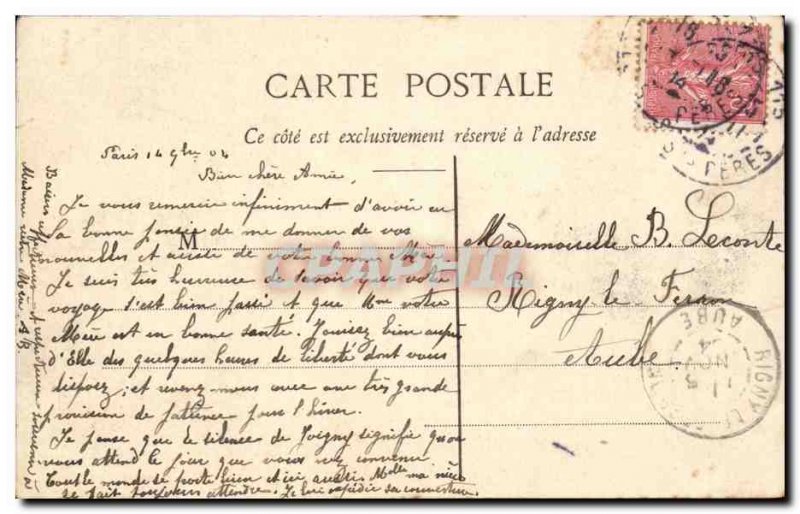 CARTE POSTALE
Ce côté est exclusivement réservé à l'adresse
Paris 14 9bre 04
Bien chère Amie,
Je vous remercie infiniment d'avoir eu
la bonne pensée de me donner de vos
nouvelles et aussi de votre bonne Mère
Je suis très heureuse de savoir que votre
voyage s'est bien passé et que Mme votre
Mère est en bonne santé. Jouissez bien auprès
d'Elle des quelques heures de liberté dont vous
disposez; et revenez nous avec une très grande
provision de patience pour l'hiver.
Je pense que le silence de Joigny signifie qu'on
vous attend le jour que vous
Tout le monde se porte bien ici aussi. Melle ma nièce
se fait toujours attendre. Je lui expédie sa couverture
Baisers affectueux et respectueux souvenir à
Madame votre Mère
M
Mademoiselle B. Leconte
Rigny le Ferron
Aube
CPAPHIL
18 15
14 -11
PERES
RIGNY LE
AUBE
15
NOV